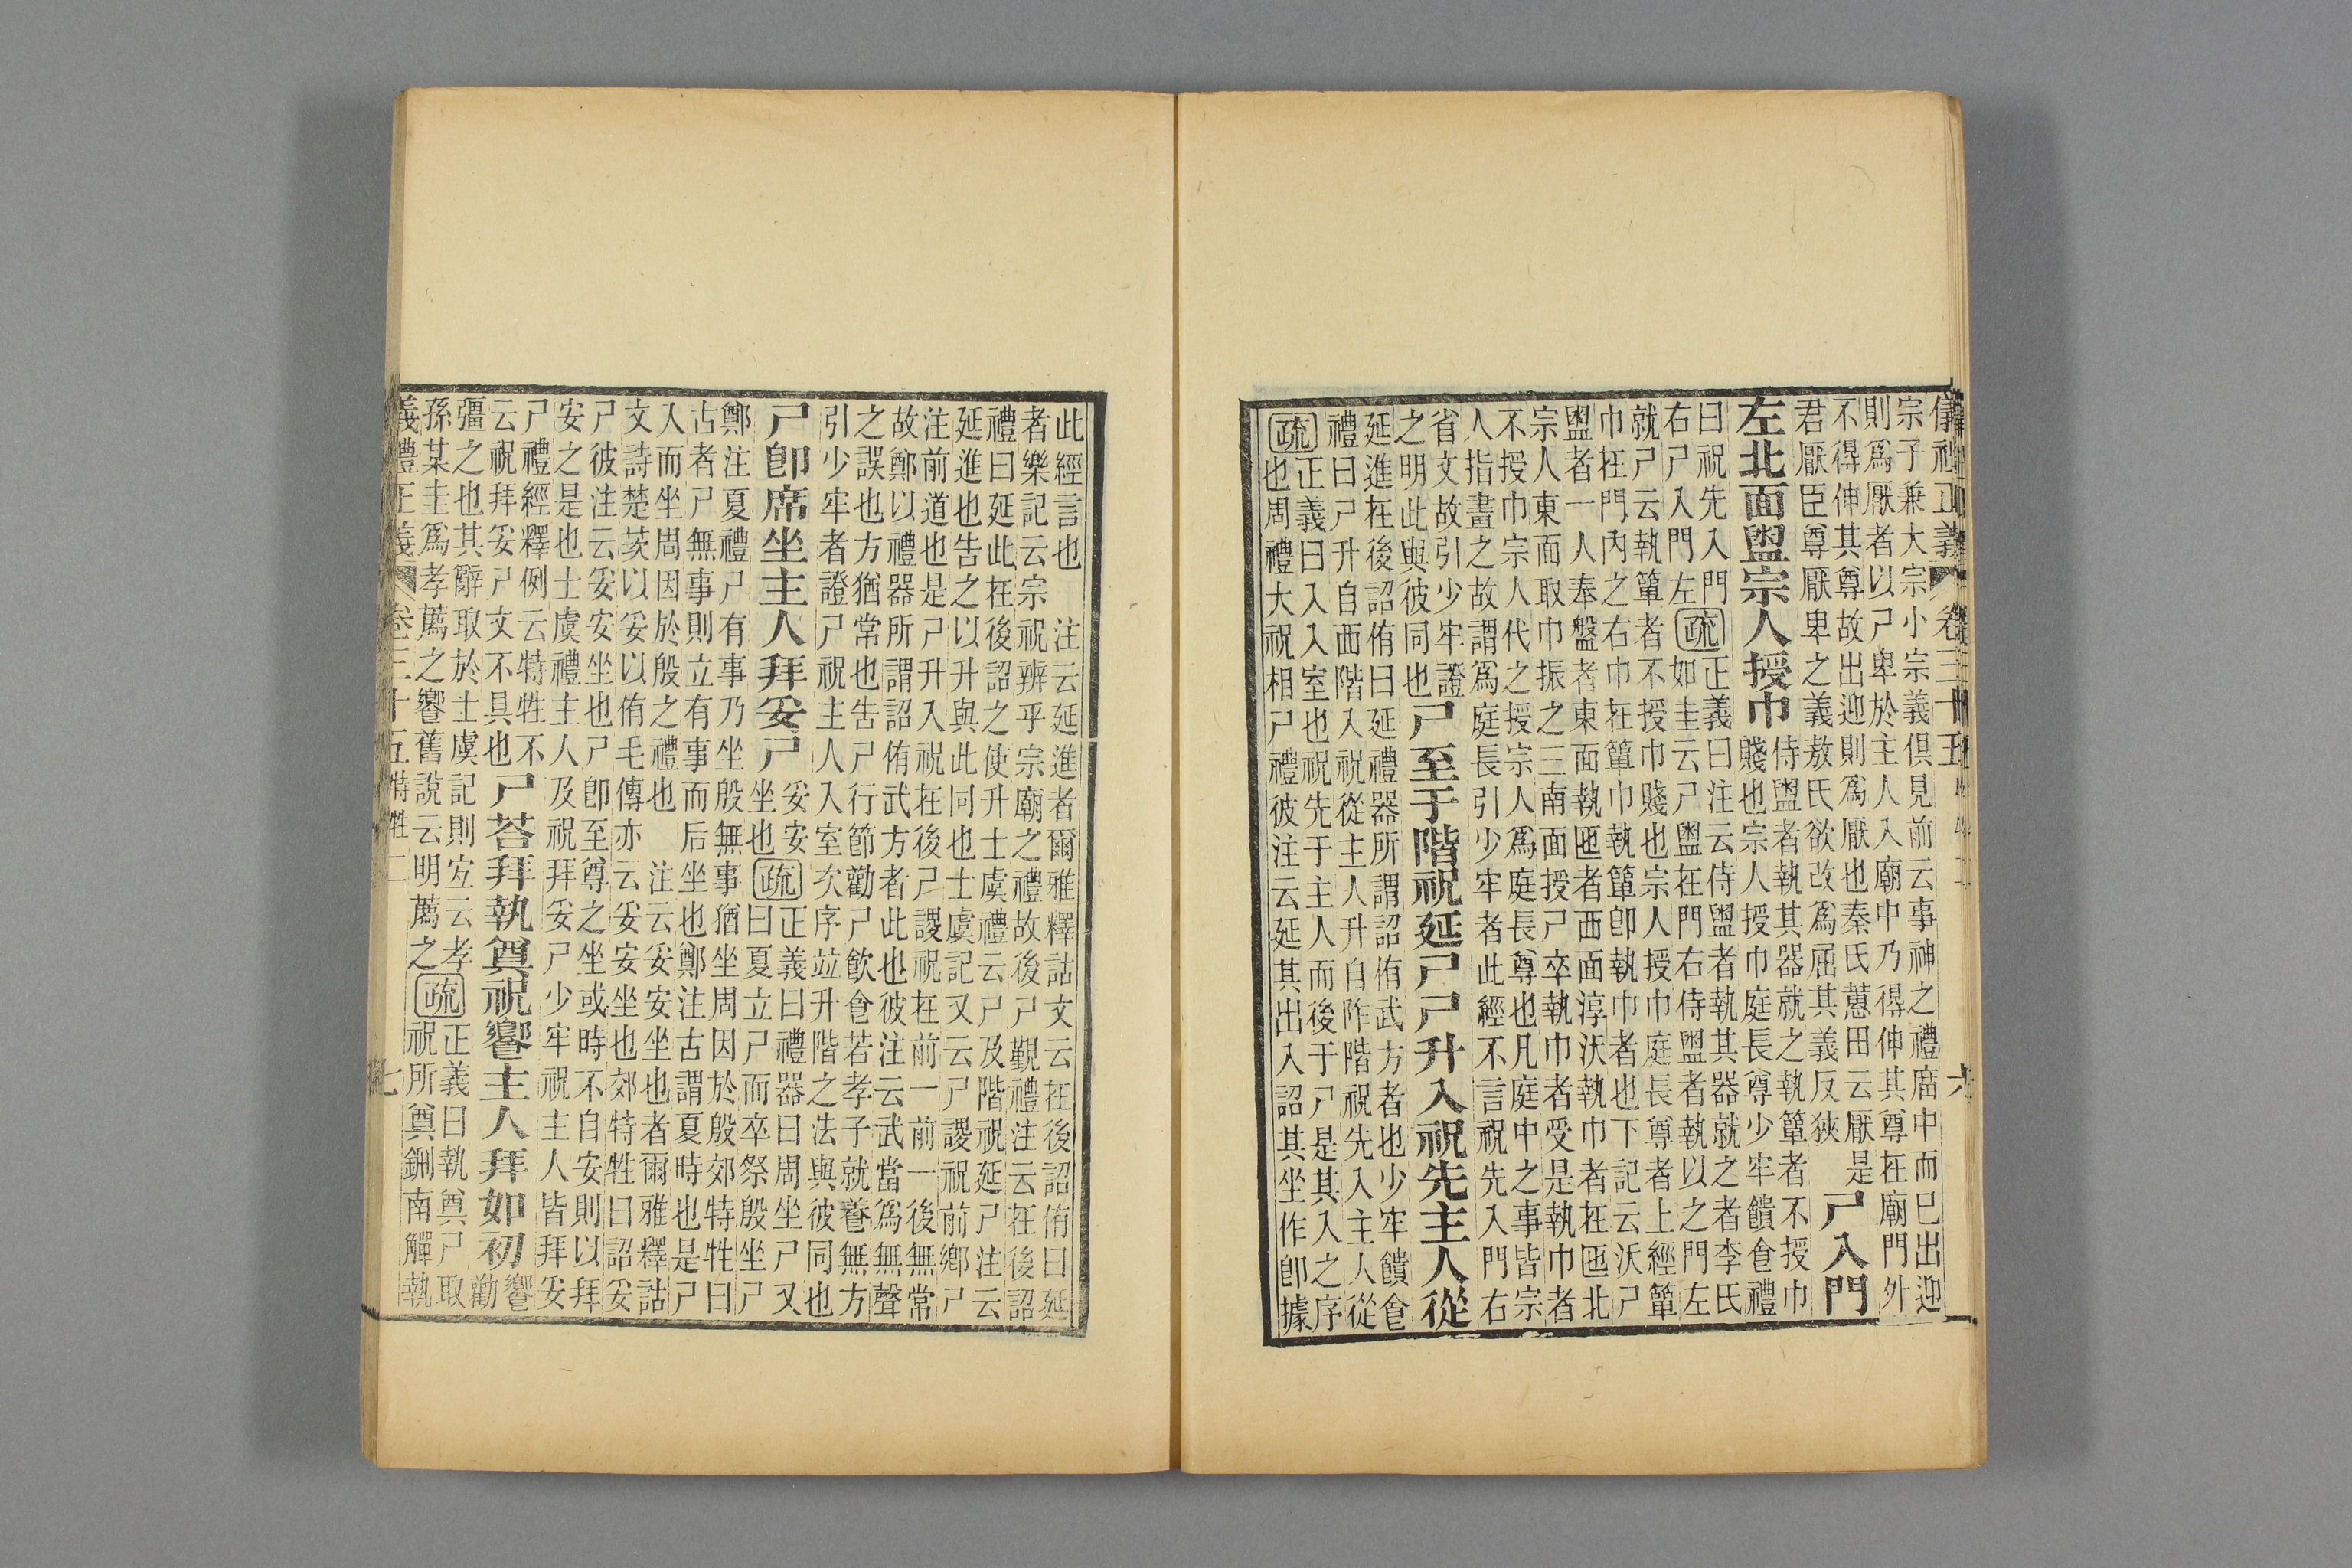 儀禮正義　卷三十五　六
宗子兼大宗小宗義俱見前云事神之禮席中而巳出迎
則爲厭者以尸卑於主人入廟中乃得伸其尊在廟門外
不得伸其尊故出迎則爲厭也秦氏蕙田云厭是
君厭臣尊厭卑之義敖氏欲改爲屈其義反狹
尸入門
左北面盥宗人授巾
侍盥者執其器就之執簞者不授巾
賤也宗人授巾庭長尊少牢饋食禮
曰祝先入門
右尸入門左
疏
正義曰注云侍盥者執其器就之者李氏
如圭云尸盥在門右侍盥者執以之門左
就尸云執簞者不授巾賤也宗人授巾庭長尊者上經簞
巾在門內之右巾在簞巾執簞卽執巾者也下記云沃尸
盥者一人奉盤者東面執匜者西面淳沃執巾者在匜北
宗人東面取巾振之三南面授尸卒執巾者受是執巾者
不授巾宗人代之授宗人爲庭長尊也凡庭中之事皆宗
人指畫之故謂爲庭長引少牢者此經不言祝先入門右
省文故引少牢證
之明此與彼同也
尸至于階祝延尸尸升入祝先主人從
延進在後詔侑曰延禮器所謂詔侑武方者也少牢饋食
禮曰尸升自西階入祝從主人升自阼階祝先入主人從
疏
正義曰入入室也祝先于主人而後于尸是其入之序
也周禮大祝相尸禮彼注云延其出入詔其坐作卽據
此經言也　注云延進者爾雅釋詁文云在後詔侑曰延
者樂記云宗祝辨乎宗廟之禮故後尸覲禮注云在後詔
禮曰延此在後詔之使升士虞禮云尸及階祝延尸注云
延進也告之以升與此同也士虞記又云尸謖祝前鄉尸
注前道也是尸升入祝在後尸謖祝在前一前一後無常
故鄭以禮器所謂詔侑武方者此也彼注云武當爲無聲
之誤也方猶常也告尸行節勸尸飲食若孝子就養無方
引少牢者證尸祝主人入室次序竝升階之法與彼同也
尸卽席坐主人拜妥尸
妥安
坐也
疏
正義曰禮器曰周坐尸又
曰夏立尸而卒祭殷坐尸
鄭注夏禮尸有事乃坐殷無事猶坐周因於殷郊特牲曰
古者尸無事則立有事而后坐也鄭注古謂夏時也是尸
人而坐周因於殷之禮也　注云妥安坐也者爾雅釋詁
文詩楚茨以妥以侑毛傳亦云妥安坐也郊特牲曰詔妥
尸彼注云妥安坐也尸卽至尊之坐或時不自安則以拜
安之是也士虞禮主人及祝拜妥尸少牢祝主人皆拜妥
尸禮經釋例云特牲不
云祝拜妥尸文不具也
尸荅拜執奠祝饗主人拜如初
饗
勸
彊之也其辭取於士虞記則宐云孝
孫某圭爲孝薦之饗舊說云明薦之
疏
正義曰執奠尸取
祝所奠鉶南觶執
義禮正義　卷三十五　特牲二　七